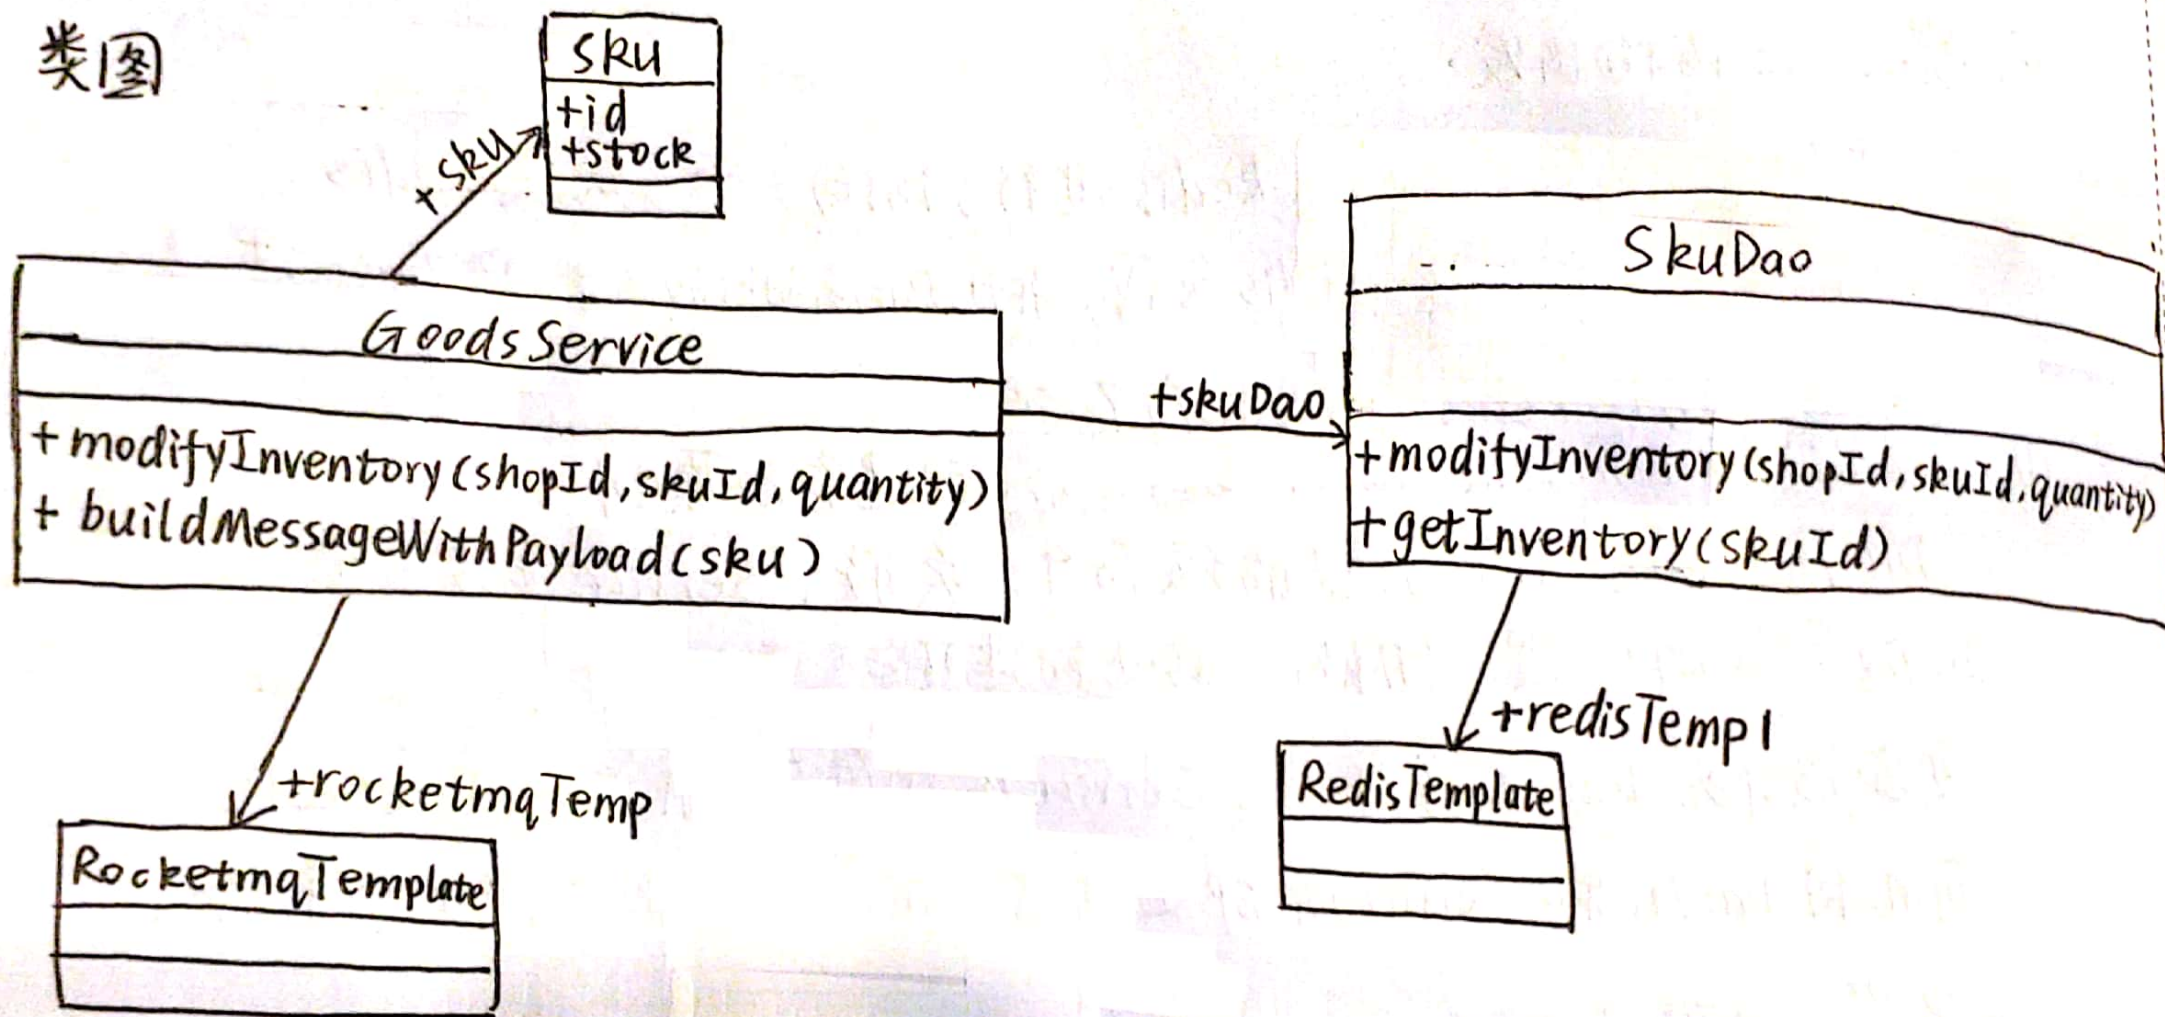 类图
sku
+id
+stock
+sku
GoodsService
+modifyInventory(shopId,skuId,quantity)
+ buildMessageWithPayload(sku)
+skuDao
SkuDao
+modifyInventory(shopId,skuId,quantity)
+getInventory(skuId)
+rocketmqTemp
RocketmqTemplate
+redisTempl
RedisTemplate